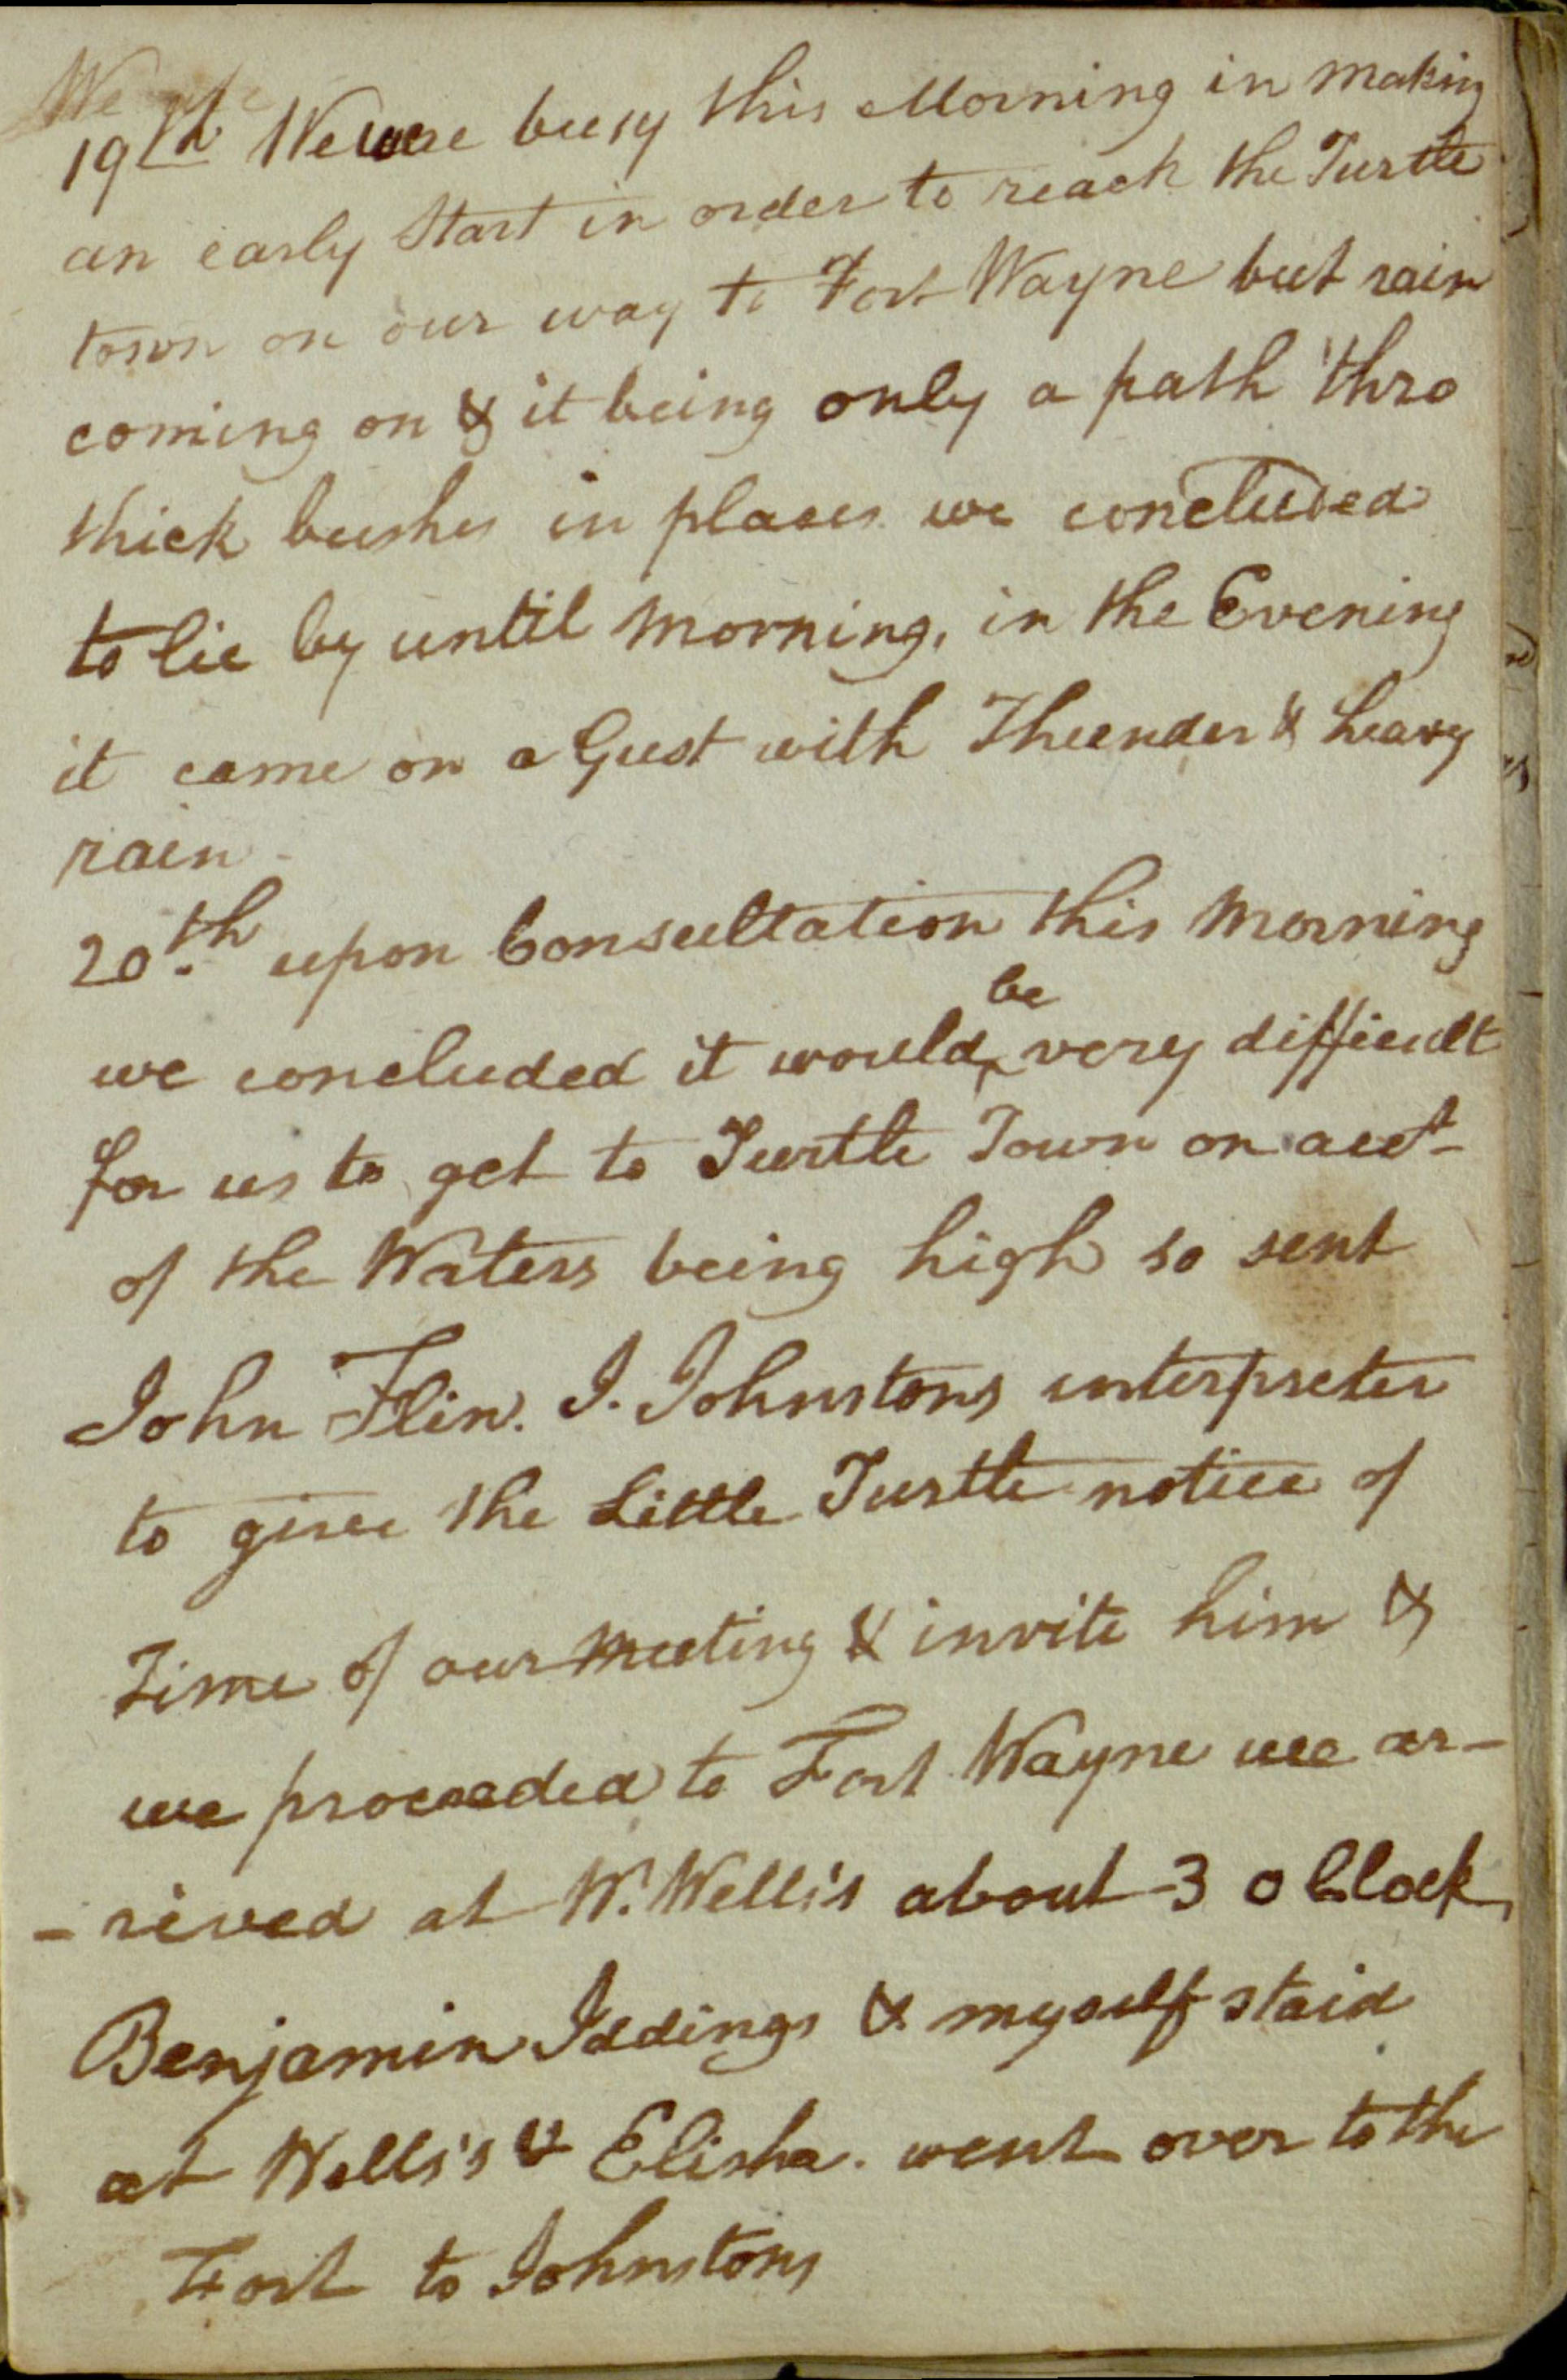 19th We were busy this Morning in making
an early Start in order to reach the Turtle
town on our way to Fort Wayne but rain
coming on & it being only a path thro
thick bushes in places we concluded
to lie by until Morning, in the Evening
it came on a Gust with Thunder & heavy
rain
20th upon Consultation this Morning
we concluded it would be very difficult
for us to get to Turtle Town on acct
of the Waters being high so sent
John Flin. J. Johnstons interpreter
to give the Little Turtle notice of
Time of our Meeting & invite him &
we proceeded to Fort Wayne we ar-
-rived at W. Wells's about 3 o Clock,
Benjamin Iddings & myself staid
at Wells's & Elisha. went over to the
Fort to Johnstons